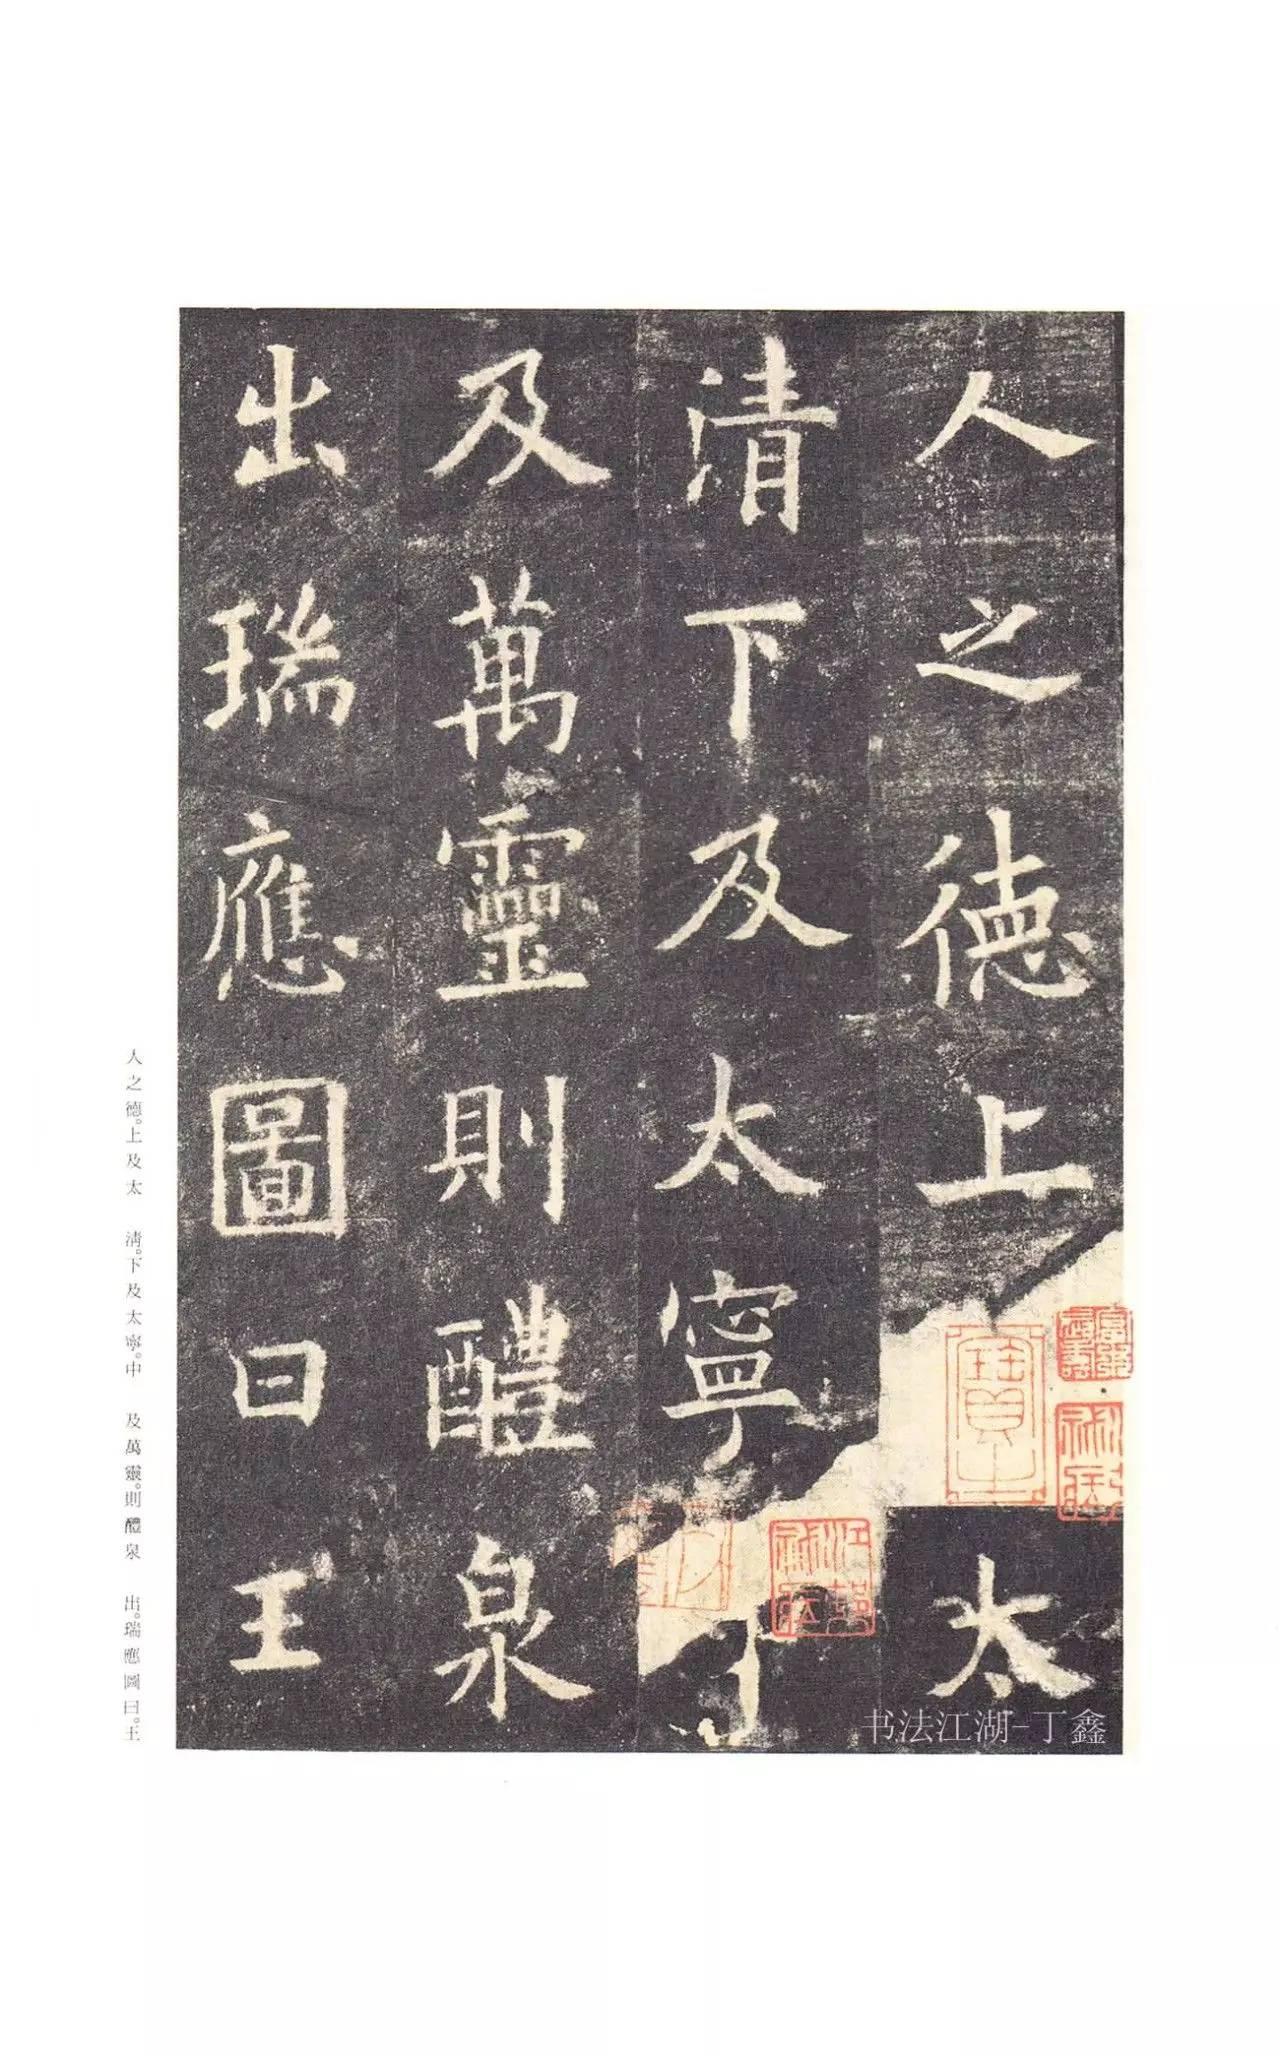 人之德上太
清下及太寧
及萬靈則醴泉
出瑞應圖曰王
人之德。上及太 清。下及太寧。中 及萬靈。則醴泉 出。瑞應圖曰。王
书法江湖-丁鑫